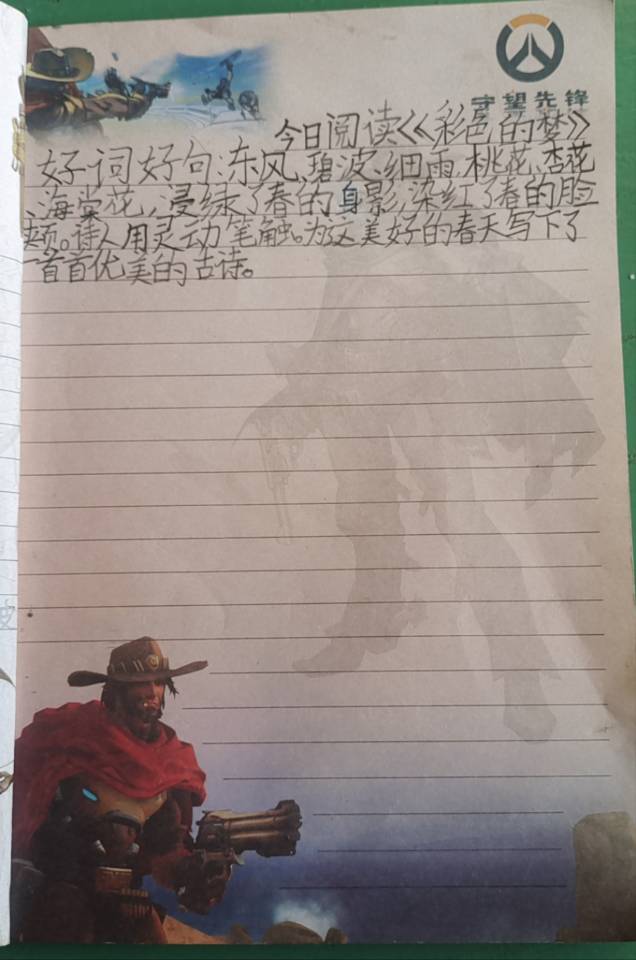 守望先锋
今日阅读《彩色的梦》
好词好句:东风、碧波、细雨、桃花、杏花
、海棠花,浸绿了春的身影,染红了春的脸
颊。诗人用灵动笔触。为这美好的春天写下了
一首首优美的古诗。